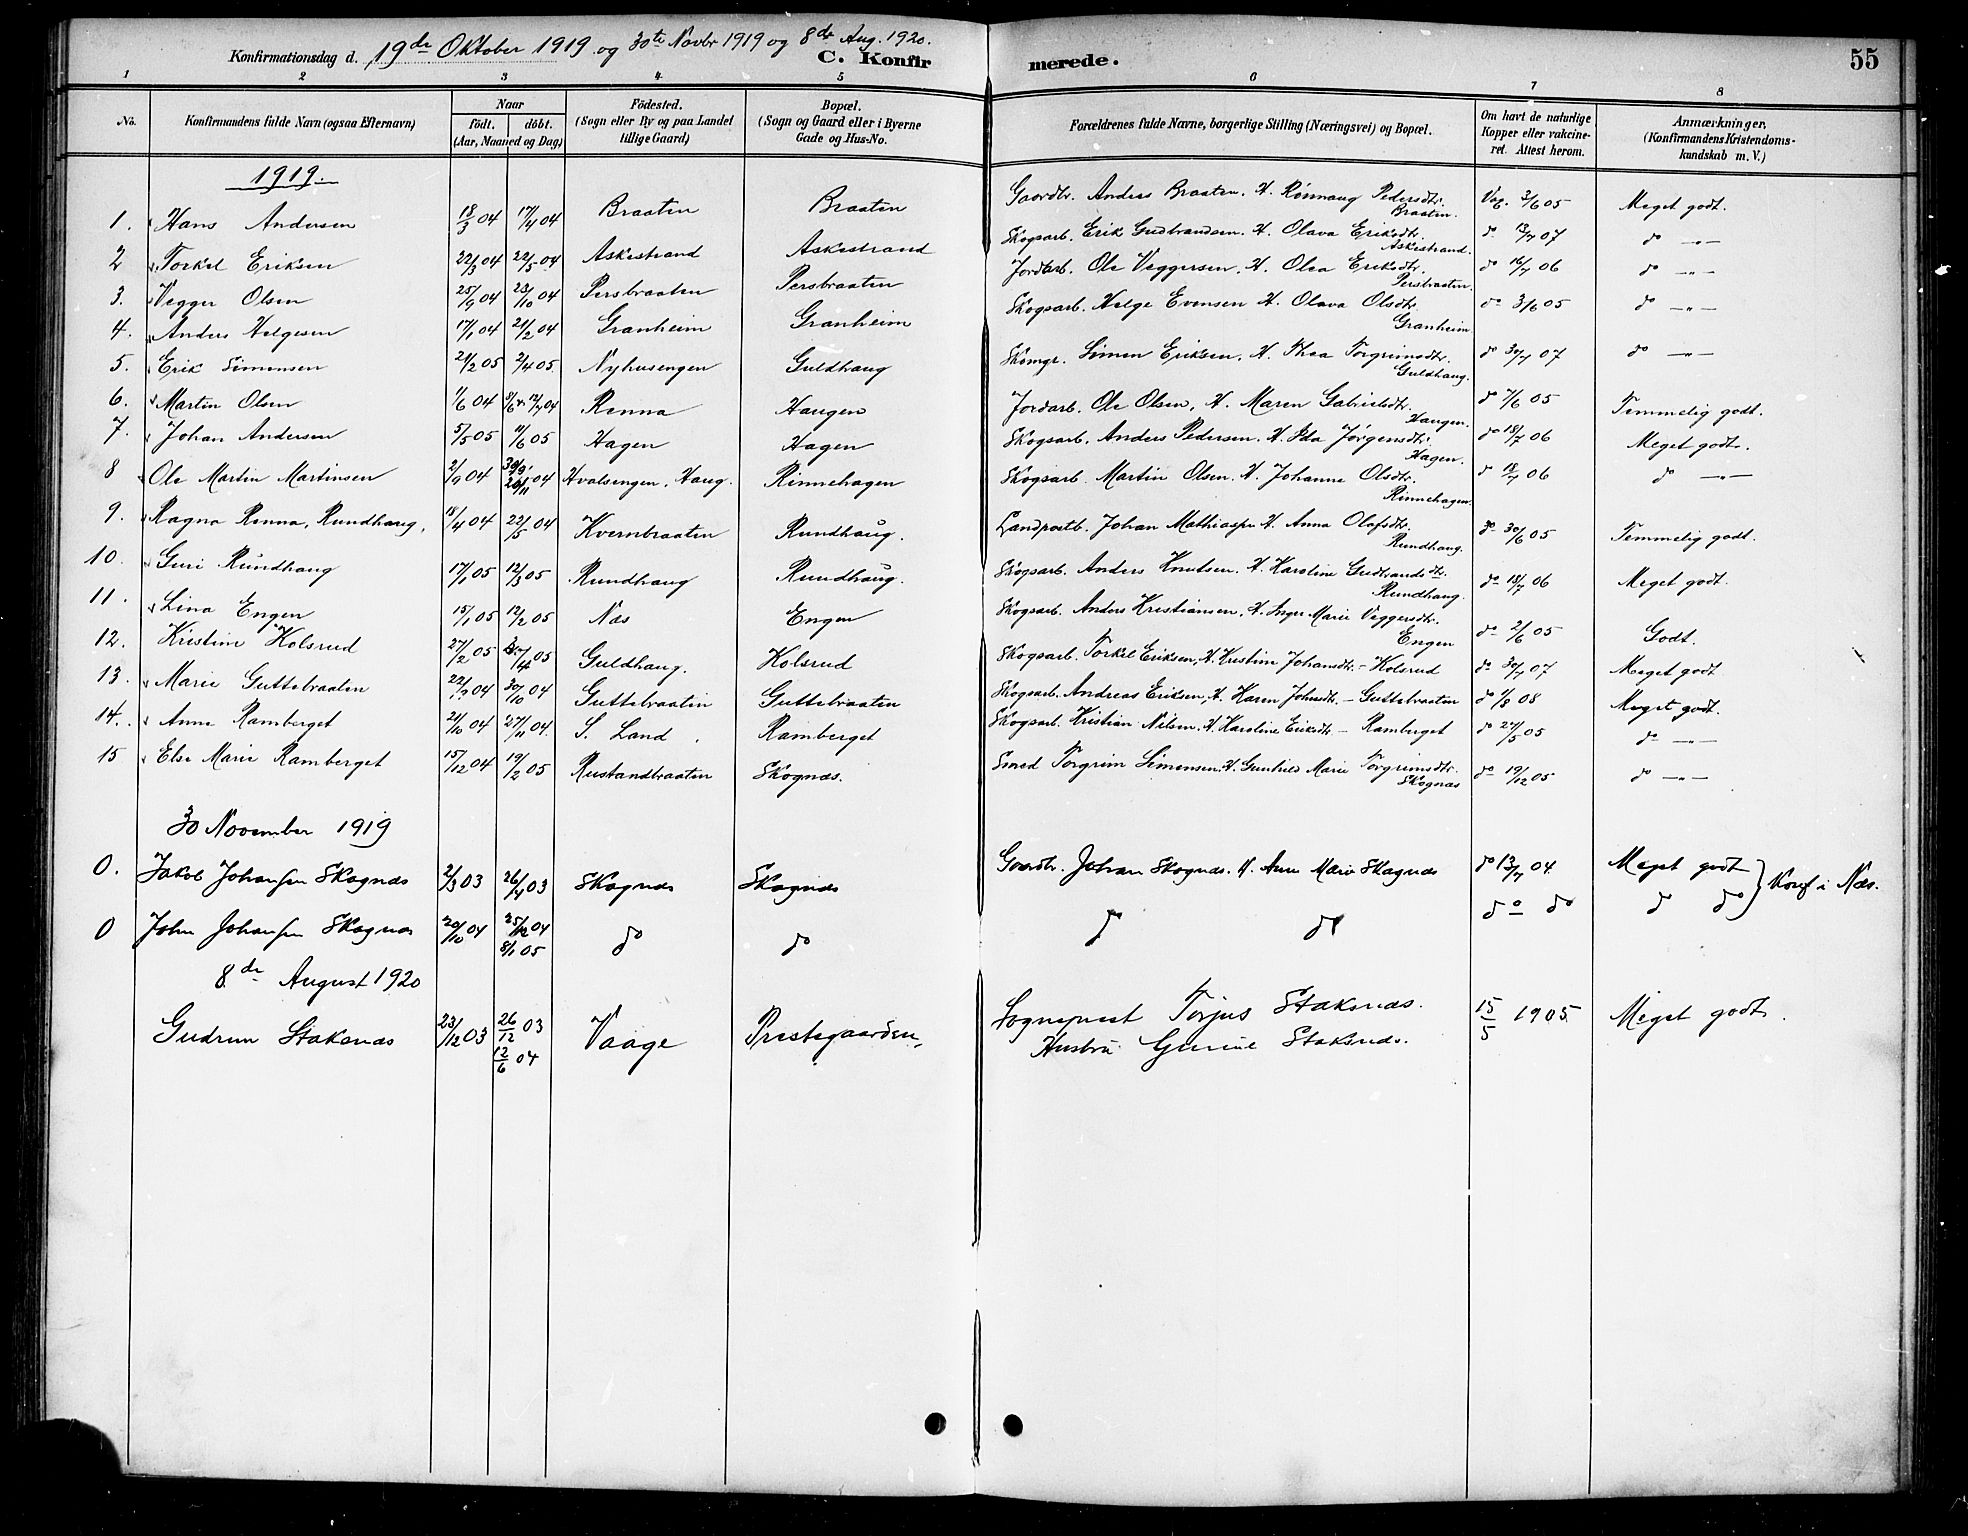 Konfirmationsdag d. 19de Oktober 1919 og 30te Novbr 1919 og 8de Aug. 1920.
C. Konfirmerede.
55
1 2 3 4 5 6 7 8
No. Konfirmandens fulde Navn (ogsaa Efternavn) Naar født. døbt. (Aar, Maaned og Dag) Födested. (Sogn eller By og paa Landet tillige Gaard) Bopæl. (Sogn og Gaard eller i Byerne Gade og Hus-No. Forældrenes fulde Navne, borgerlige Stilling (Næringsvei) og Bopæl. Om havt de naturlige Kopper eller vakcineret. Attest herom. Anmærkninger, (Konfirmandens Kristendomskundskab m. V.)
1919.
1. Hans Andersen 18/3 04 17/4 04 Braaten Braaten Gaardbr. Anders Braaten. H. Rönnaug Pedersdtr. Braaten. Vac. 3/6 05 Meget godt.
2 Torkel Eriksen 22/3 04 22/5 04 Askestrand Askestrand Skogsarb. Erik Gudbrandsen. H. Olava Eriksdtr. Askestrand. do 13/7 07 do —"—
3. Vegger Olsen 25/9 04 23/10 04 Persbraaten Persbraaten Jordarb. Ole Veggersen, H. Olea Eriksdtr. Persbraaten. do 16/7 06 do —"—
4. Anders Helgesen 17/1 04 21/2 04 Granheim Granheim Skogsarb. Helge Evensen H. Olava Olsdtr. Granheim do 3/6 05 do —"—
5. Erik Simensen 21/2 05 2/4 05 Nyhusengen Guldhaug Skomgr. Simen Eriksen. H. Thea Torgrimsdtr. Guldhaug. do 30/7 07 do —"—
6. Martin Olsen 1/6 04 Renna Haugen Jordarb. Ole Olsen, H. Maren Gabrielsdtr. Haugen. do 7/6 05 Temmelig godt.
7. Johan Andersen 5/5 05 11/6 05 Hagen Hagen Skogsarb. Anders Pedersen. H. Ida Jörgensdtr. Hagen. do 18/7 06 Meget godt.
8 Ole Martin Martinsen 2/9 04 30/9 20/11 04 Hvalsengen, Haug. Rinnehagen Skogsarb. Martin Olsen. H. Johanne Olsdtr. Rinnehagen do 18/7 06 do —
9. Ragna Renna, Rundhaug, 18/4 04 22/5 04 Kvernbraaten Rundhaug. Landpostb. Johan Mathiasen H. Anna Olafsdtr. Rundhaug. do 30/6 05 Temmelig godt.
10. Guri Rundhaug 17/1 05 12/3 05 Rundhaug Rundhaug. Skogsarb. Anders Knutsen. H. Karoline Gudbrandsdtr. Rundhaug. do 18/7 06 Meget godt.
11. Lina Engen 15/1 05 12/2 05 Næs Engen Skogsarb. Anders Kristiansen, H. Inger Marie Veggersdtr. Engen do 2/6 05 Godt.
12. Kristine Kolsrud 27/2 05 05 Guldhaug. Kolsrud Skogsarb. Torkel Eriksen, H. Kristine Johansdtr. - Kolsrud do 30/7 07 Meget godt
13. Marie Guttebraaten 22/9 04 30/10 04 Guttebraaten Guttebraaten Skogsarb. Andreas Eriksen, H. Karen Johnsdtr. - Guttebraaten do 1/8 08 Meget godt.
14. Anne Ramberget 21/10 04 27/11 04. S. Land. Ramberget Skogsarb. Kristian Nilsen. H. Karoline Eriksdtr - Ramberget do 27/5 05 do —"—
15 Else Marie Ramberget 15/12 04 19/2 05 Rustandbraaten Skognæs. Smed Torgrim Simensen. H. Gunhild Marie Torgrimsdtr. Skognæs do 19/12 05 do —"—
30 November 1919
0. Jakob Johansen Skognæs 2/3 03 26/4 03 Skognæs Skognæs Gaardbr. Johan Skognæs. H. Anne Marie Skognæs do 13/7 04. Meget godt
Konf i Næs.
0 John Johansen Skognæs 20/10 04 25/12 04 8/1 05 do do do do do do do do
8de August 1920
Gudrun Staksnæs 23/12 03 26/12 03 12/6 04 Vaage Prestegaarden, Sogneprest Torjus Staksnæs. 15/5 1905. Meget godt.
Hustru Staksnæs.